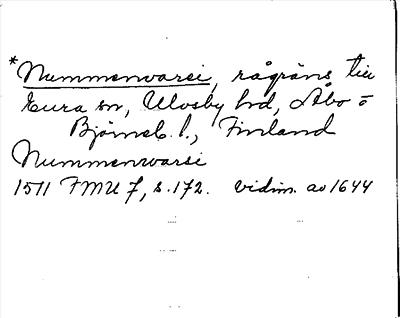 *Nummenvarsi, rågräns till
Eura sn, Ulvsby hd, Åbo o
Björneb. l., Finland
Nummenwarsi
1511 FMU 7, s. 172. vidim. av 1644